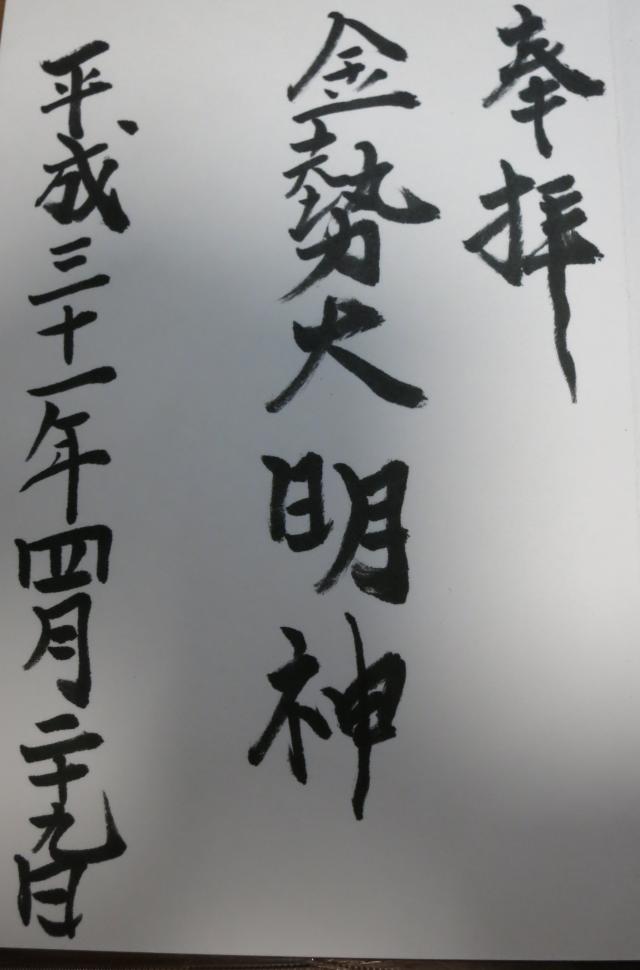 奉拝
金勢大明神
平成三十一年四月二十九日